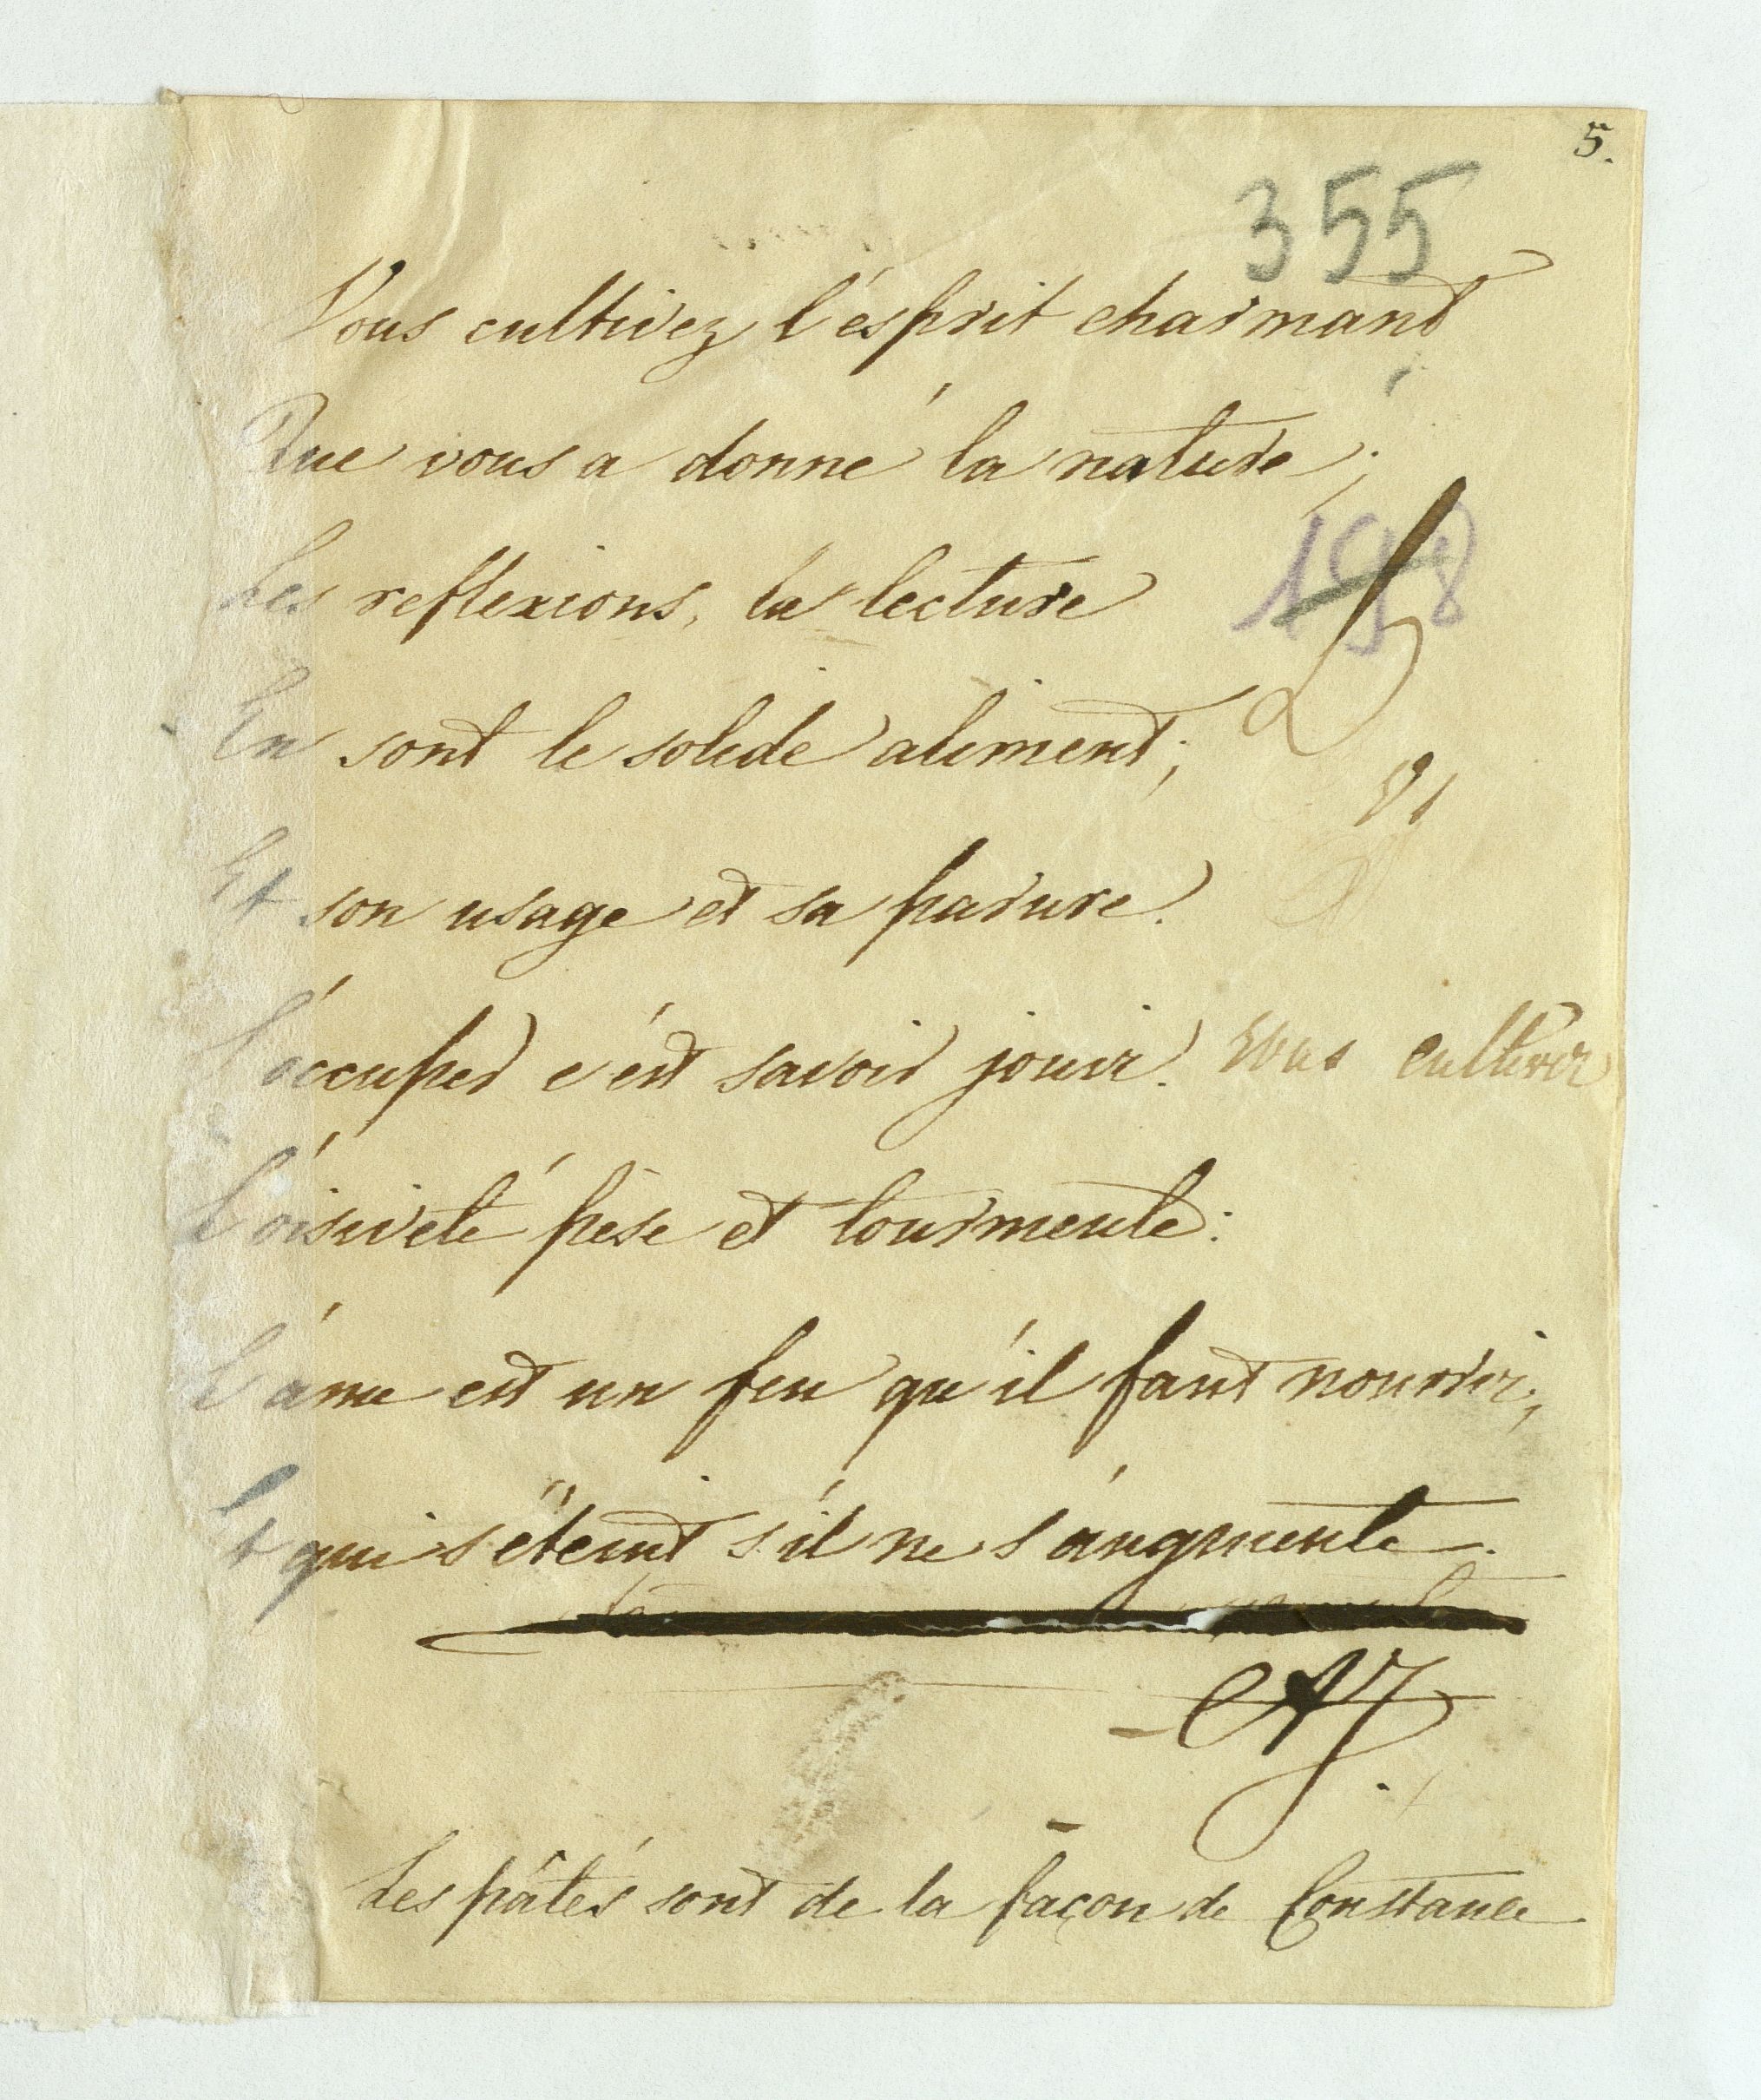 5.
355
Vous cultivez l'ésprit charmant
Que vous a donné la nature;
198
Les reflexions, la lecture
En sont le solide aliment;
Et son usage et sa parure.
S'occuper c'est savoir jouir. vous cultivez
L'oisiveté pèse et tourmente:
L'ame est un feu qu'il faut nourrir;
Et qui s'éteint s'il ne s'augmente.
Les pâtés sont de la façon de Constance.